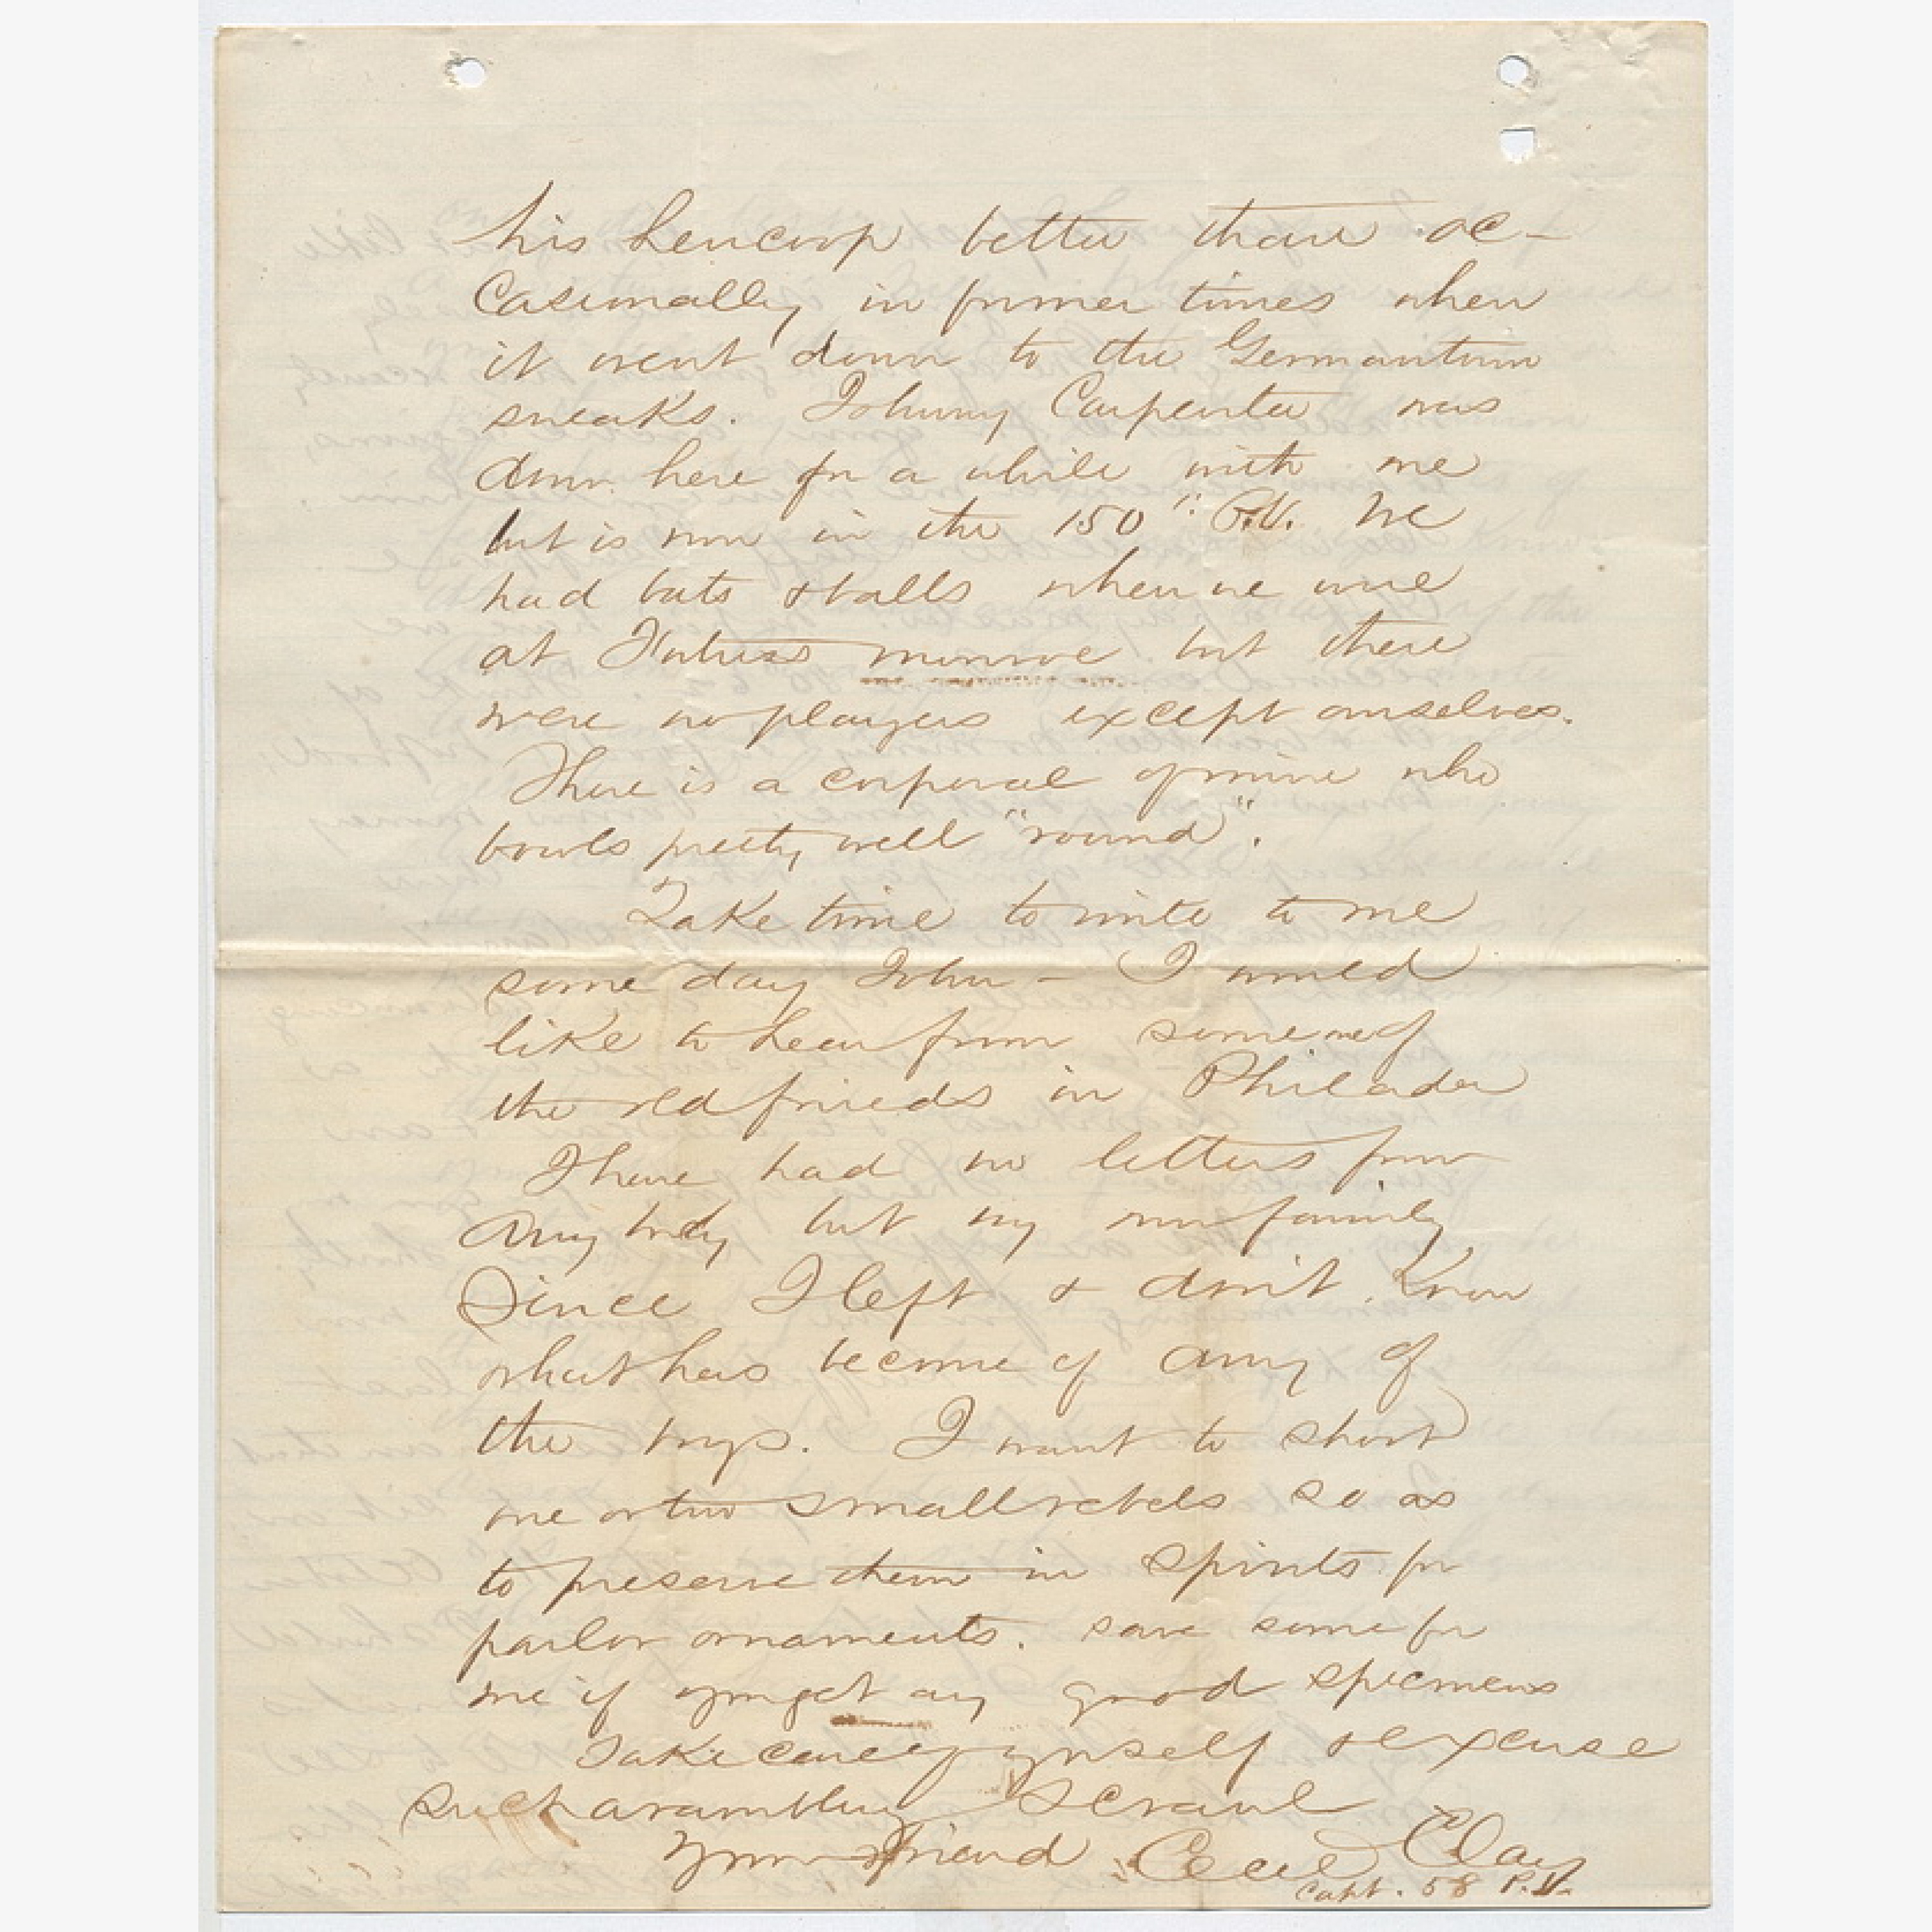 his hencoop better than oc-
casionally in former times when
it went down to the Germantown
sneaks. Johnny Carpenter was
down here for a while with me
but is now in the 150" P.V. We
had bats & balls when we were
at Fortress Monroe but there
were no players except ourselves.
There is a corporal of mine who
bowls pretty well "round".
Take time to write to me
some day John - I would
like to hear from some one of
the old frieds in Philada
I have had no letters from
any body but my own family
since I left & don't know
what has become of any of
the boys. I want to shoot
one or two small rebels so as
to preserve them in spirits for
parlor ornaments. save some for
me if you get any good specimens
Take care of yourself & excuse
such a rambling scrawl
Your friend Cecil Clay
Capt. 58 P.V.